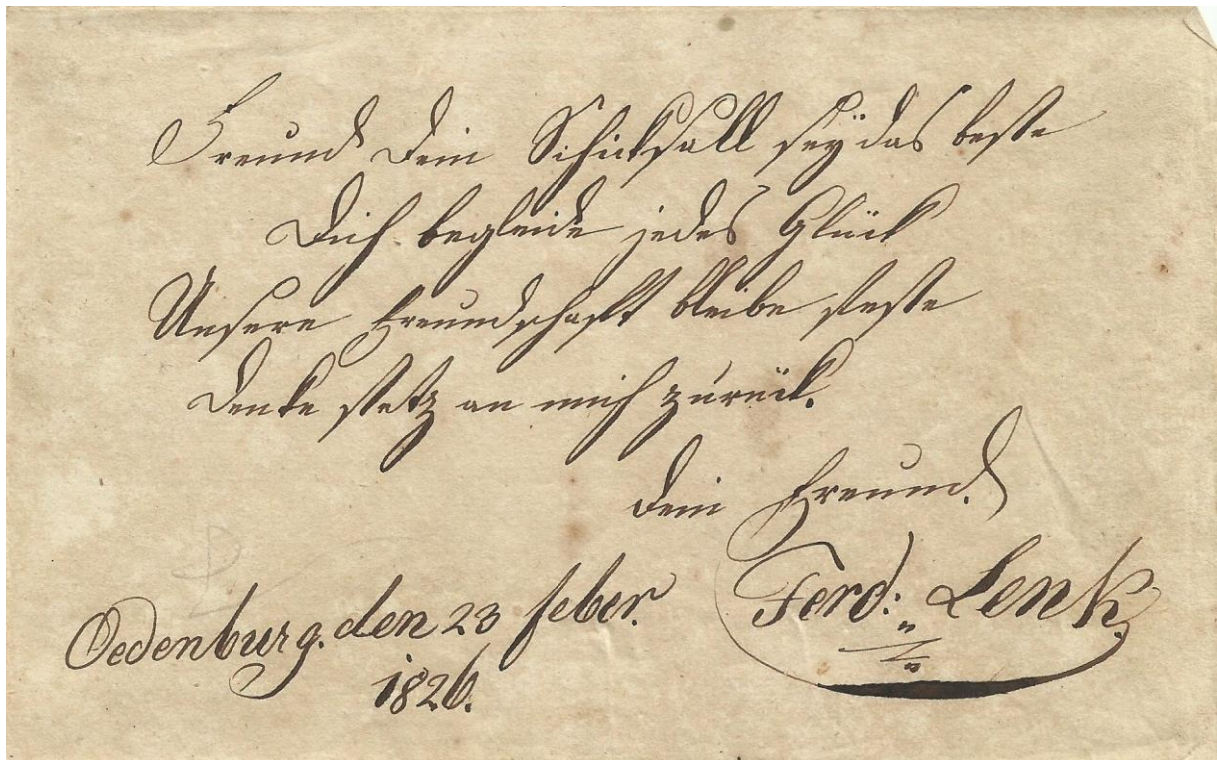 Freund dein Schicksall sey das beste
Dich begleide jedes Glück
Unsere Freundschaft bleibe feste
Denke stetz an mich zurück.
Dein Freund.
Ferd: Lenk.
Oedenburg. den 23 feber.
1826.